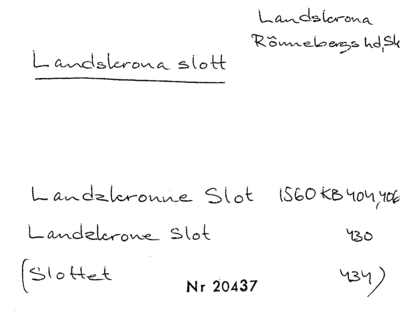 Landskrona
Rönnebergs hd, Sk
Landskrona slott
Landzkronne Slot 1560 KB 404, 406
Landzkrone Slot 430
(Slottet 434)
Nr 20437